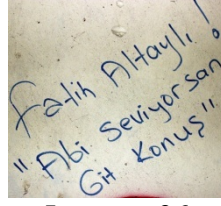 Fatih Altaylı!
"Abi Seviyorsan
Git Konuş"